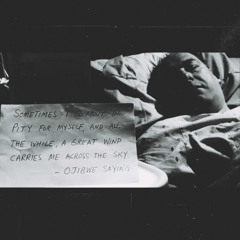 SOMETIMES I GO ABOUT IN
PITY FOR MYSELF AND ALL
THE WHILE, A GREAT WIND
CARRIES ME ACROSS THE SKY.
- OJIBWE SAYING